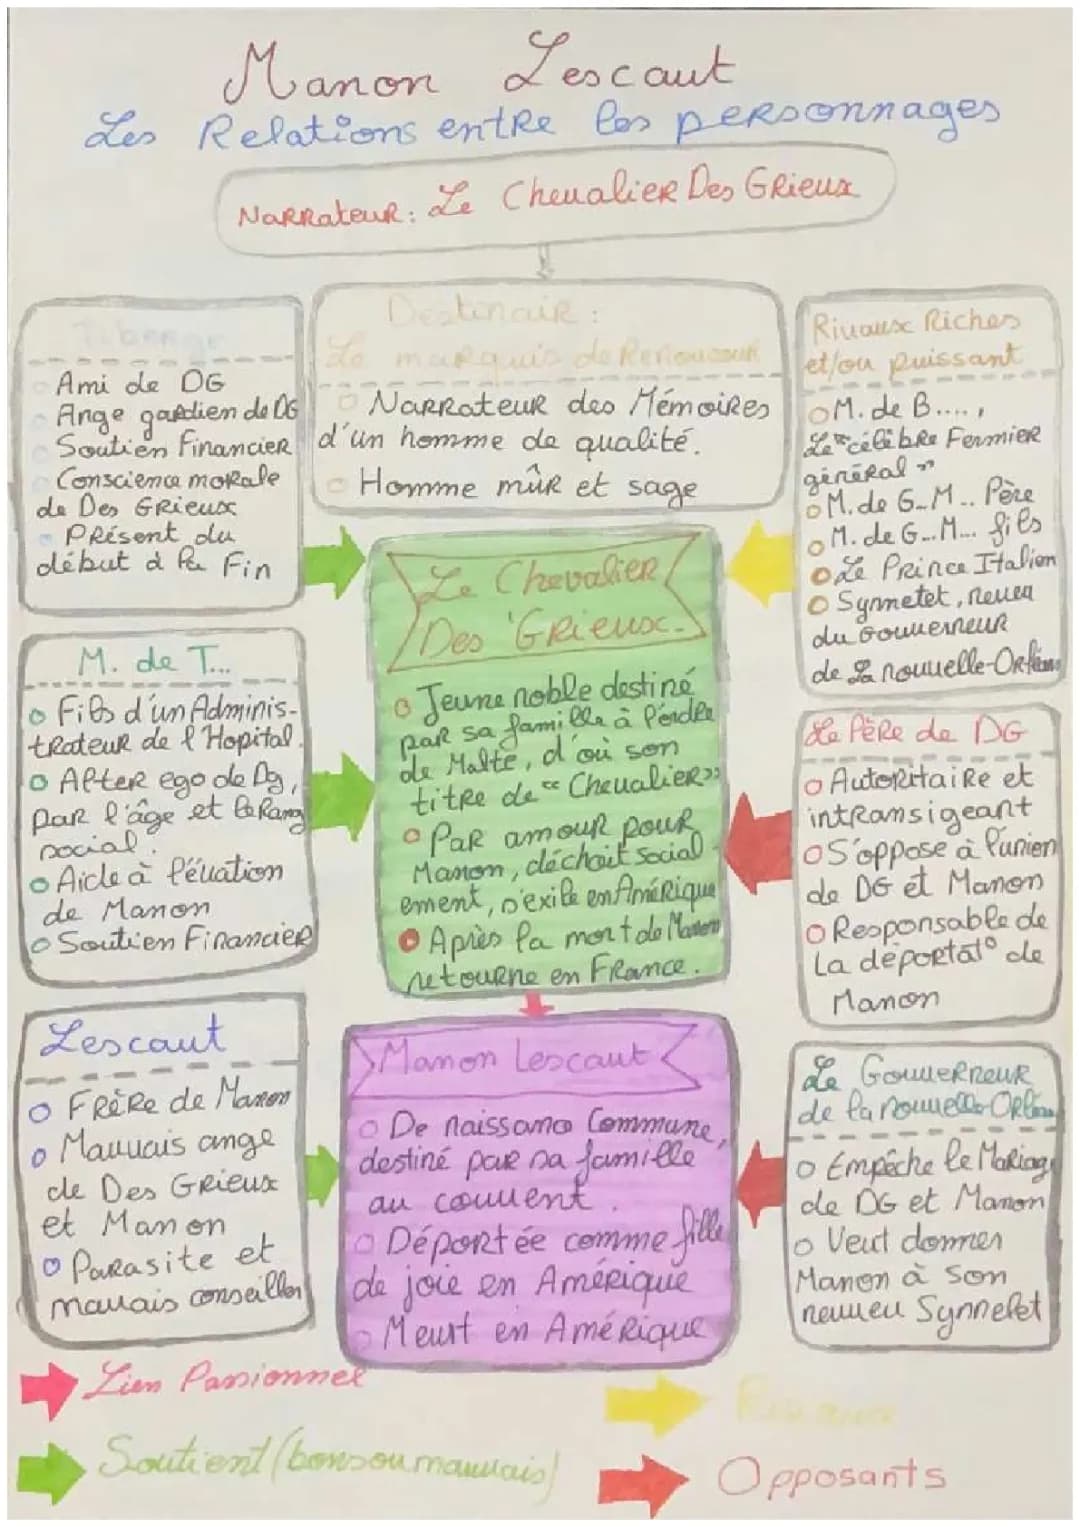 Manon Lescaut
Les Relations entre les personnages
Narrateur: Le Chevalier Des Grieux
Tiberge
Ami de DG
Ange gardien de DG
Soutien Financier
Conscience morale
de Des Grieux
Présent du
début à la Fin
Destinair :
Le marquis de Renoucour
Narrateur des Mémoires
d'un homme de qualité.
Homme mûr et sage
Rivaux Riches
et/ou puissant
M. de B....,
Le "célèbre Fermier
général"
M. de G..M.. Père
M. de G...M... fils
Le Prince Italien
Synnetet, neveu
du Gouverneur
de La nouvelle-Orléans
M. de T...
Fils d'un Adminis-
trateur de l'Hopital.
Alter ego de Dg,
par l'âge et le Rang
social.
Aide à l'évation
de Manon
Soutien Financier
Le Chevalier
Des Grieux.
Jeune noble destiné
par sa famille à l'ordre
de Malte, d'où son
titre de "Chevalier"
Par amour pour
Manon, déchoit social-
ement, s'exile en Amérique
Après la mort de Manon
retourne en France.
Le Père de DG
Autoritaire et
intransigeant
S'oppose à l'union
de DG et Manon
Responsable de
la déportat° de
Manon
Lescaut
Frère de Manon
Mauvais ange
de Des Grieux
et Manon
Parasite et
mauvais conseiller
Manon Lescaut
De naissance Commune,
destiné par sa famille
au couvent.
Déportée comme fille
de joie en Amérique
Meurt en Amérique
Le Gouverneur
de la nouvelle-Orléans
Empêche le Mariage
de DG et Manon
Veut donner
Manon à Son
neuveu Synnelet
Lien Passionnel
Rivaux
Soutient (bons ou mauvais)
Opposants